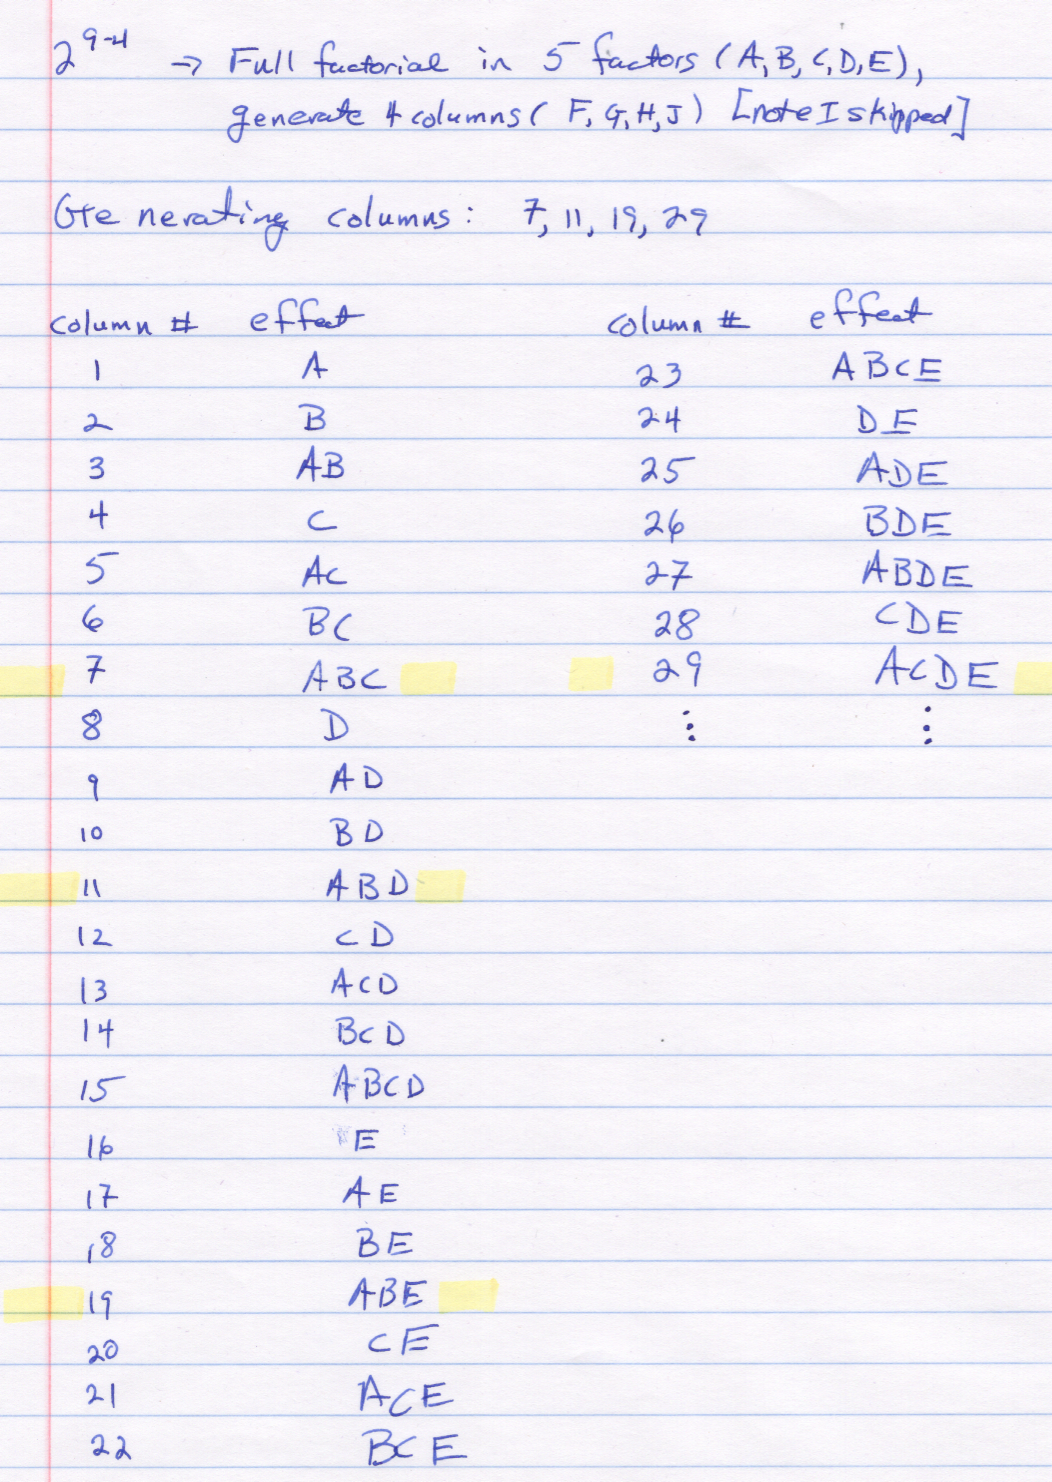 2^9-4 → Full factorial in 5 factors (A, B, C, D, E),
generate 4 columns ( F, G, H, J ) [note I skipped]
Generating columns: 7, 11, 19, 29
column # effect column # effect
1 A 23 ABCE
2 B 24 DE
3 AB 25 ADE
4 C 26 BDE
5 AC 27 ABDE
6 BC 28 CDE
7 ABC 29 ACDE
8 D ⋮ ⋮
9 AD
10 BD
11 ABD
12 CD
13 ACD
14 BCD
15 ABCD
16 E
17 AE
18 BE
19 ABE
20 CE
21 ACE
22 BCE